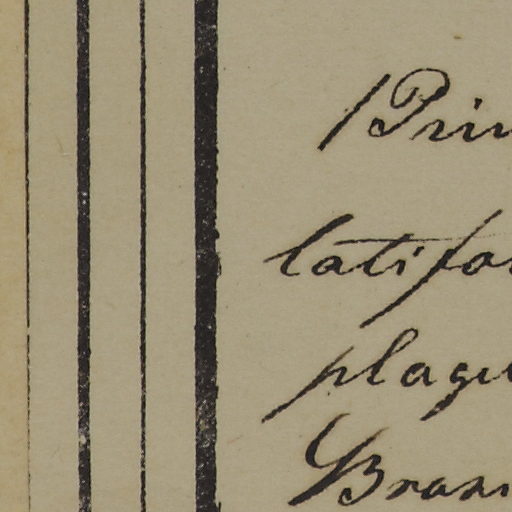 Prin
latifo
plagu
Bran